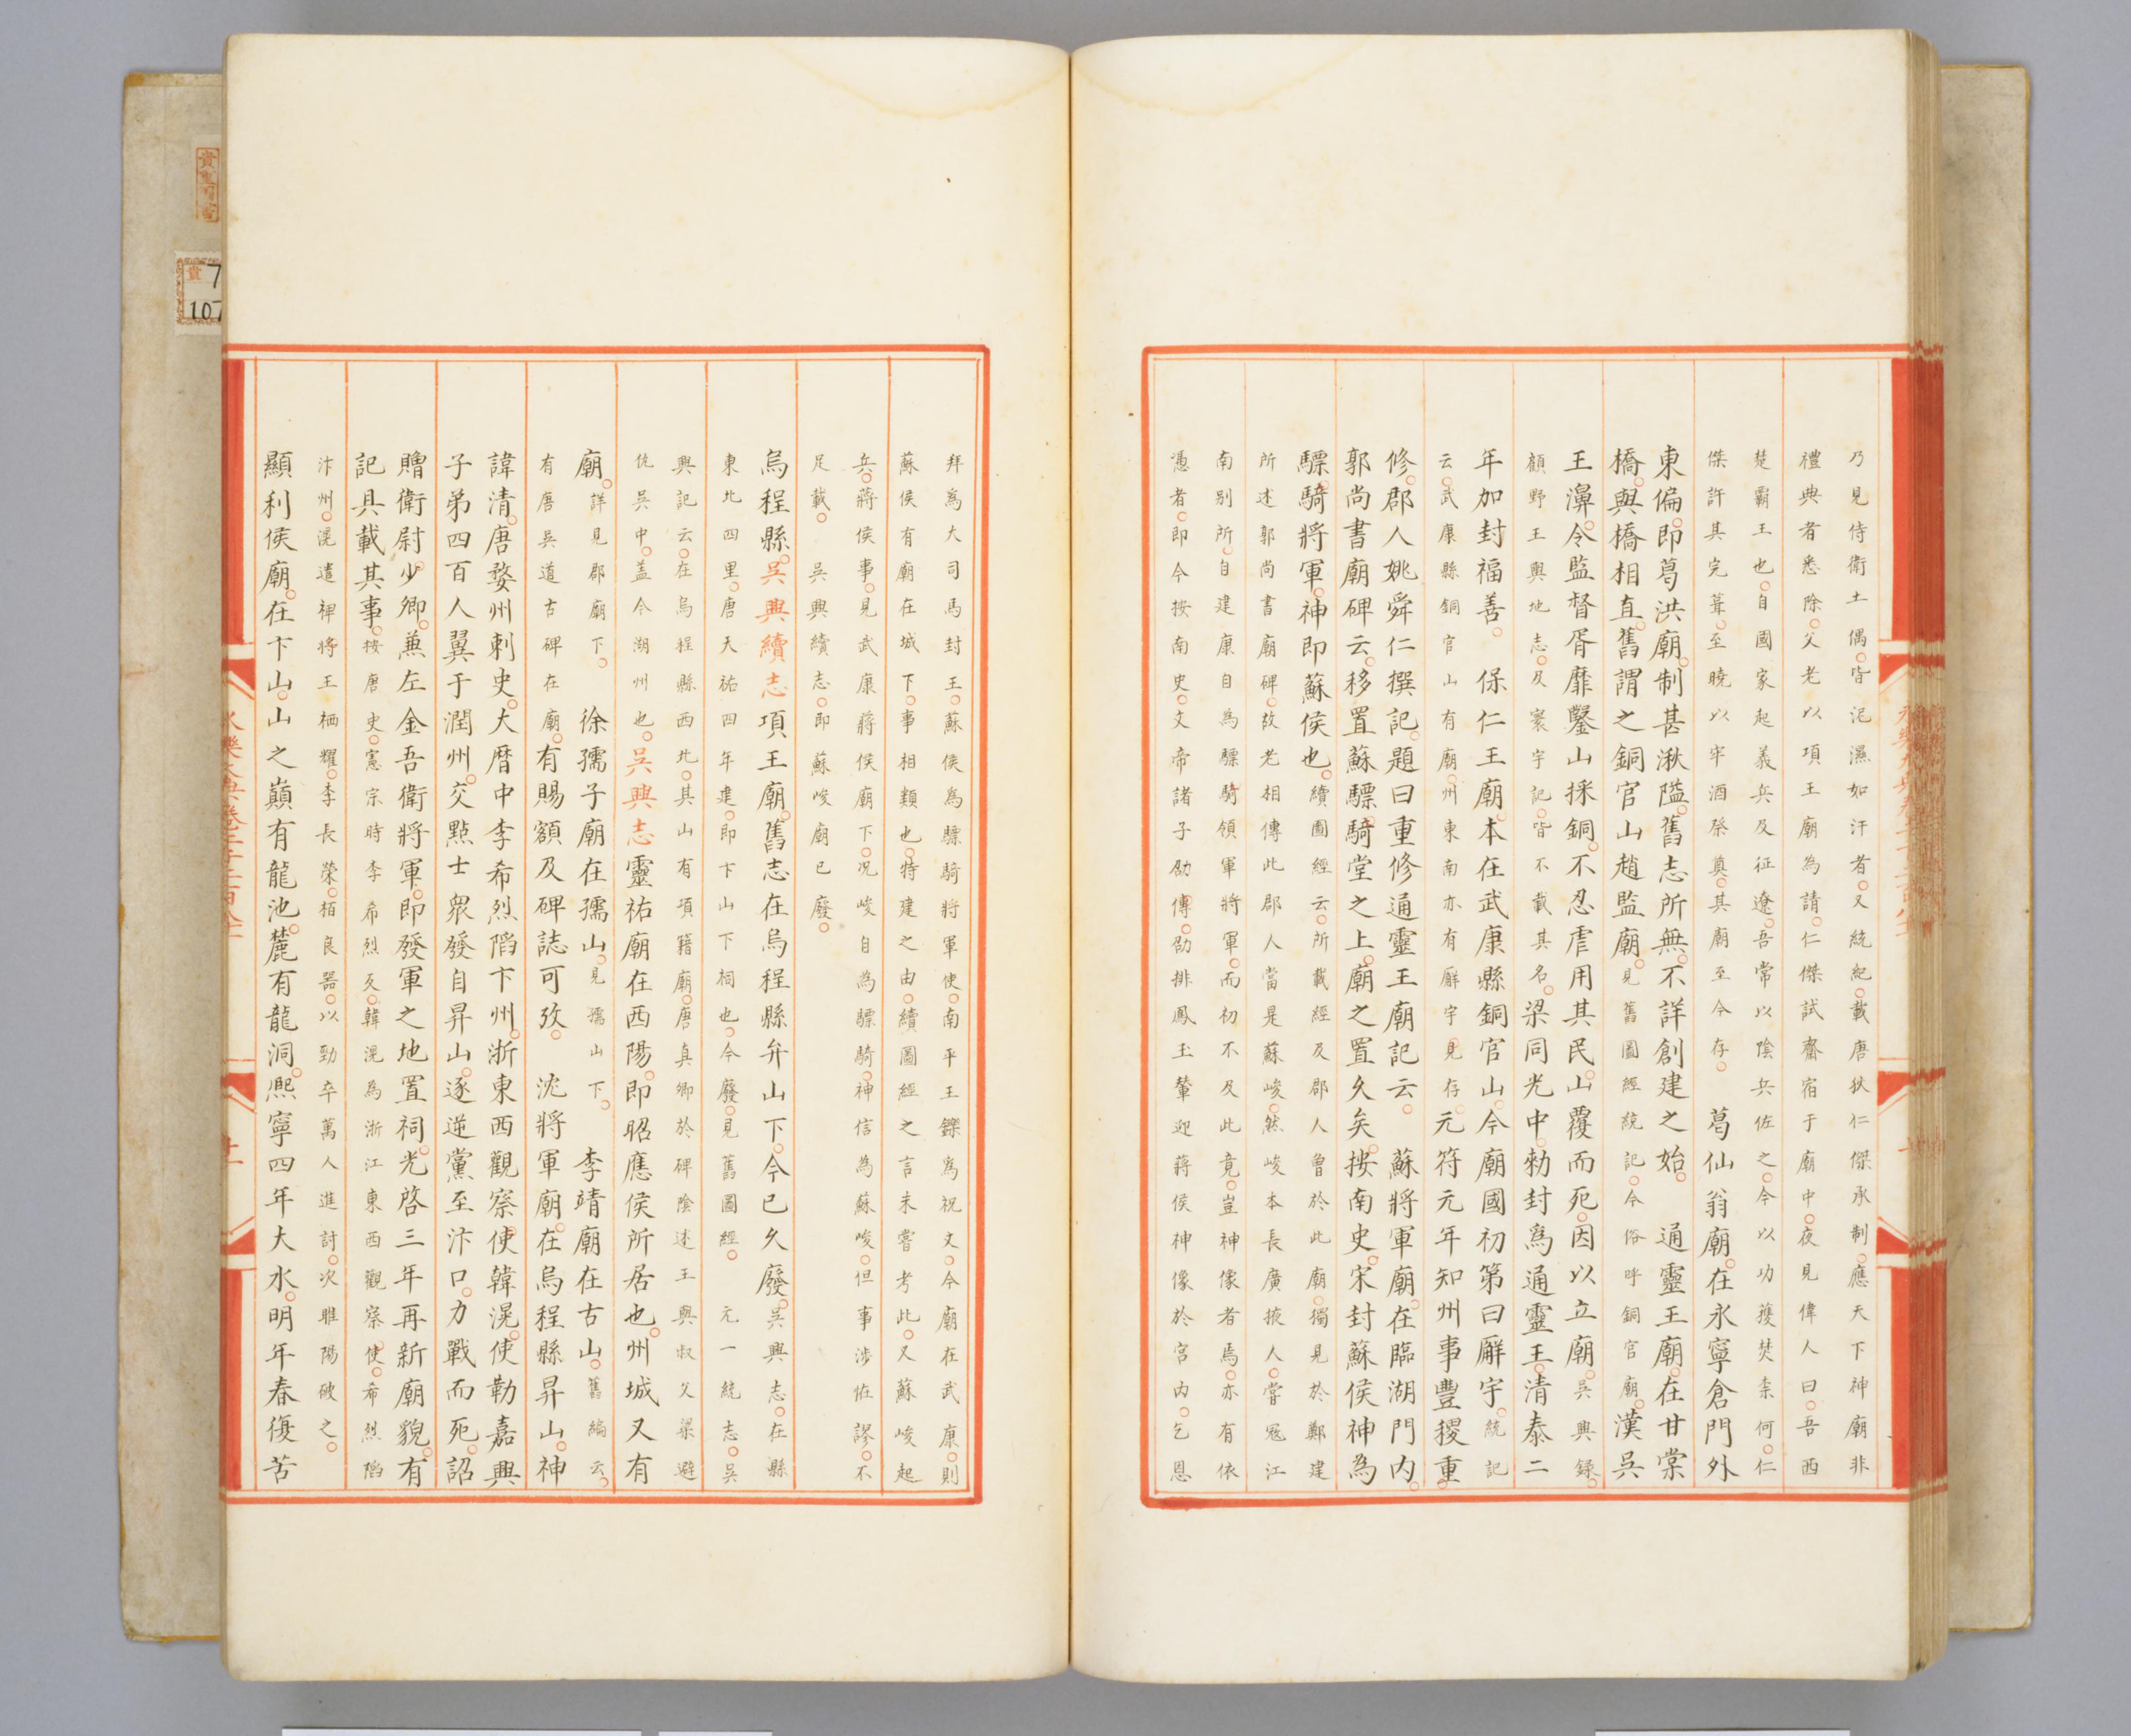 乃見侍衛土偶。皆泥濕如汗者。又統紀。載唐狄仁傑承制。應天下神廟非
禮典者悉除。父老以項王廟為請。仁傑試齋宿于廟中。夜見偉人曰。吾西
楚霸王也。自國家起義兵及征遼。吾常以陰兵佐之。今以功獲焚柰何。仁
傑許其完葺。至曉以牢酒祭奠。其廟至今存。　葛仙翁廟。在永寧倉門外
東偏。即葛洪廟。制甚湫隘。舊志所無。不詳創建之始。　通靈王廟。在甘棠
橋。與橋相直。舊謂之銅官山趙監廟。見舊圖經統記。今俗呼銅官廟。漢吳
王濞。令監督胥靡鑿山採銅。不忍虐用其民。山覆而死。因以立廟。吳興錄。
顧野王輿地志。及寰宇記。皆不載其名。梁同光中。勑封爲通靈王。清泰二
年加封福善。　保仁王廟。本在武康縣銅官山。今廟國初第曰廨宇。統記
云。武康縣銅官山有廟。州東南亦有廨宇見存。元符元年知州事豐稷重
修。郡人姚舜仁撰記。題曰重修通靈王廟記云。　蘇將軍廟。在臨湖門内。
郭尚書廟碑云。移置蘇驃騎堂之上。廟之置久矣。按南史。宋封蘇侯神為
驃騎將軍。神即蘇侯也。續圖經云。所載經及郡人曾於此廟。獨見於鄭建
所述郭尚書廟碑。故老相傳此郡人當是蘇峻。然峻本長廣掖人。嘗冦江
南别所。自建康自為驃騎領軍將軍。而初不及此竟。豈神像者焉。亦有依
憑者。即今按南史。文帝諸子劭傳。劭排鳳玉輦迎蔣侯神像於宫内。乞恩
拜爲大司馬封王。蘇侯爲驃騎將軍使。南平王鑠爲祝文。今廟在武康。則
蘇侯有廟在城下。事相類也。特建之由。續圖經之言未嘗考此。又蘇峻起
兵。蔣侯事。見武康蔣侯廟下。况峻自為驃騎。神信為蘇峻。但事涉佐謬。不
足載。　吳興續志。即蘇峻廟已廢。
烏程縣。吳興續志項王廟。舊志在烏程縣弁山下。今已久廢。吳興志。在縣
東北四里。唐天祐四年建。即卞山下祠也。今廢。見舊圖經。　元一統志。吳
興記云。在烏程縣西北。其山有項籍廟。唐真卿於碑陰述王與叔父梁避
仇吳中。蓋今湖州也。吳興志靈祐廟在西陽。即昭應侯所居也。州城又有
廟。詳見郡廟下。　徐孺子廟在孺山。見孺山下。　李靖廟在古山。舊編云。
有唐吳道古碑在廟。有賜額及碑誌可攷。　沈將軍廟。在烏程縣昇山。神
諱清。唐婺州刺史。大曆中李希烈陷卞州。浙東西觀察使韓滉。使勒嘉興
子弟四百人翼于潤州。交點士衆發自昇山。逐逆黨至汴口。力戰而死。詔
贈衛尉少卿。兼左金吾衛將軍。即發軍之地置祠。光啓三年再新廟貌。有
記具載其事。按唐史。憲宗時李希烈反。韓滉為浙江東西觀察使。希烈陷
汴州。滉遣裨將王栖耀。李長榮。栢良器。以勁卒萬人進討。次睢陽破之。
顯利侯廟。在卞山。山之巔有龍池。麓有龍洞。熈寧四年大水。明年春復苦